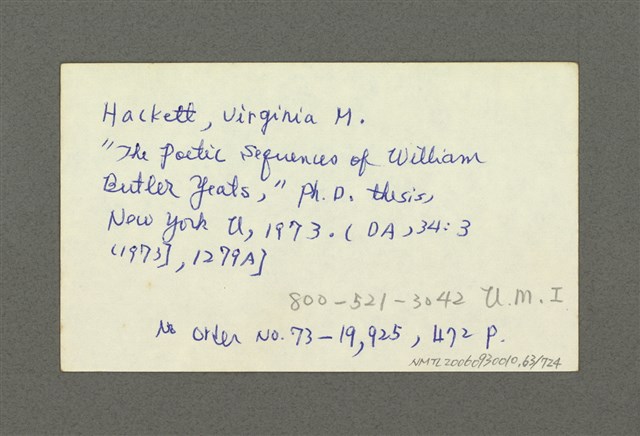 Hackett, Virginia M.
"The Poetic Sequences of William
Butler Yeats," Ph.D. thesis,
New York U, 1973. (DA, 34:3
(1973], 1279A]
800-521-3042 U.M.I
No Order No. 73-19,925, 472 P.
NMTL20060930010.63/724